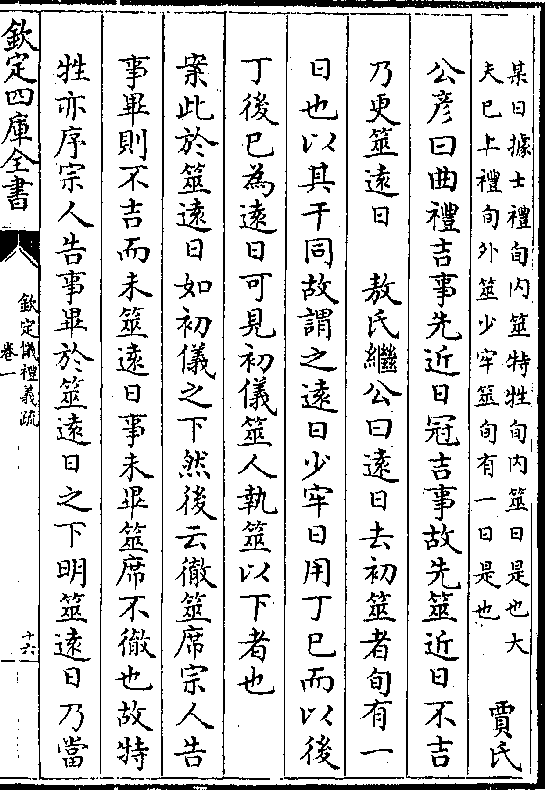 某日據士禮旬内筮特牲旬内筮日是也大
夫已上禮旬外筮少牢筮旬有一日是也
賈氏
公彦曰曲禮吉事先近日冠吉事故先筮近日不吉
乃更筮逺日　敖氏繼公曰逺日去初筮者旬有一
日也以其干同故謂之逺日少牢日用丁已而以後
丁後已為逺日可見初儀筮人執筮以下者也
案此於筮逺日如初儀之下然後云徹筮席宗人告
事畢則不吉而未筮逺日事未畢筮席不徹也故特
牲亦序宗人告事畢於筮逺日之下明筮逺日乃當
欽定四庫全書
欽定儀禮義疏
卷一
十六